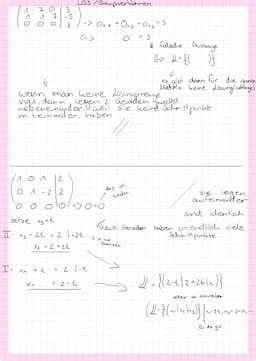 LGS / Gaußverfahren
1 7 0 | 3
1 1 7 | -5
0 0 0 | 3
-> 0x₁ + 0x₂ - 0x₃ = 3
(=) 0 = 3
falsche Aussage
=> 𝕃 = { }
es gibt dann für die ganze Matrix keine Lösung(smenge)
wenn man keine Lösungsmenge
hat, dann liegen 2 Geraden parallel
nebeneinander, weil sie keine Schnittpunkte
miteinander haben
1 0 1 | 2
0 1 -2 | 2
0 0 0 | 0 => 0 = 0
das ist wahr
sie liegen
aufeinander
sind identisch
setze x₃ = t
zwei Geraden haben unendlich viele
Schnittpunkte
II: x₂ - 2t = 2 | +2t
x₂ = 2 + 2t
I: x₁ + t = 2 | -t
x₁ = 2 - t
𝕃 = {(2-t | 2+2t | t)}
oder so schreiben